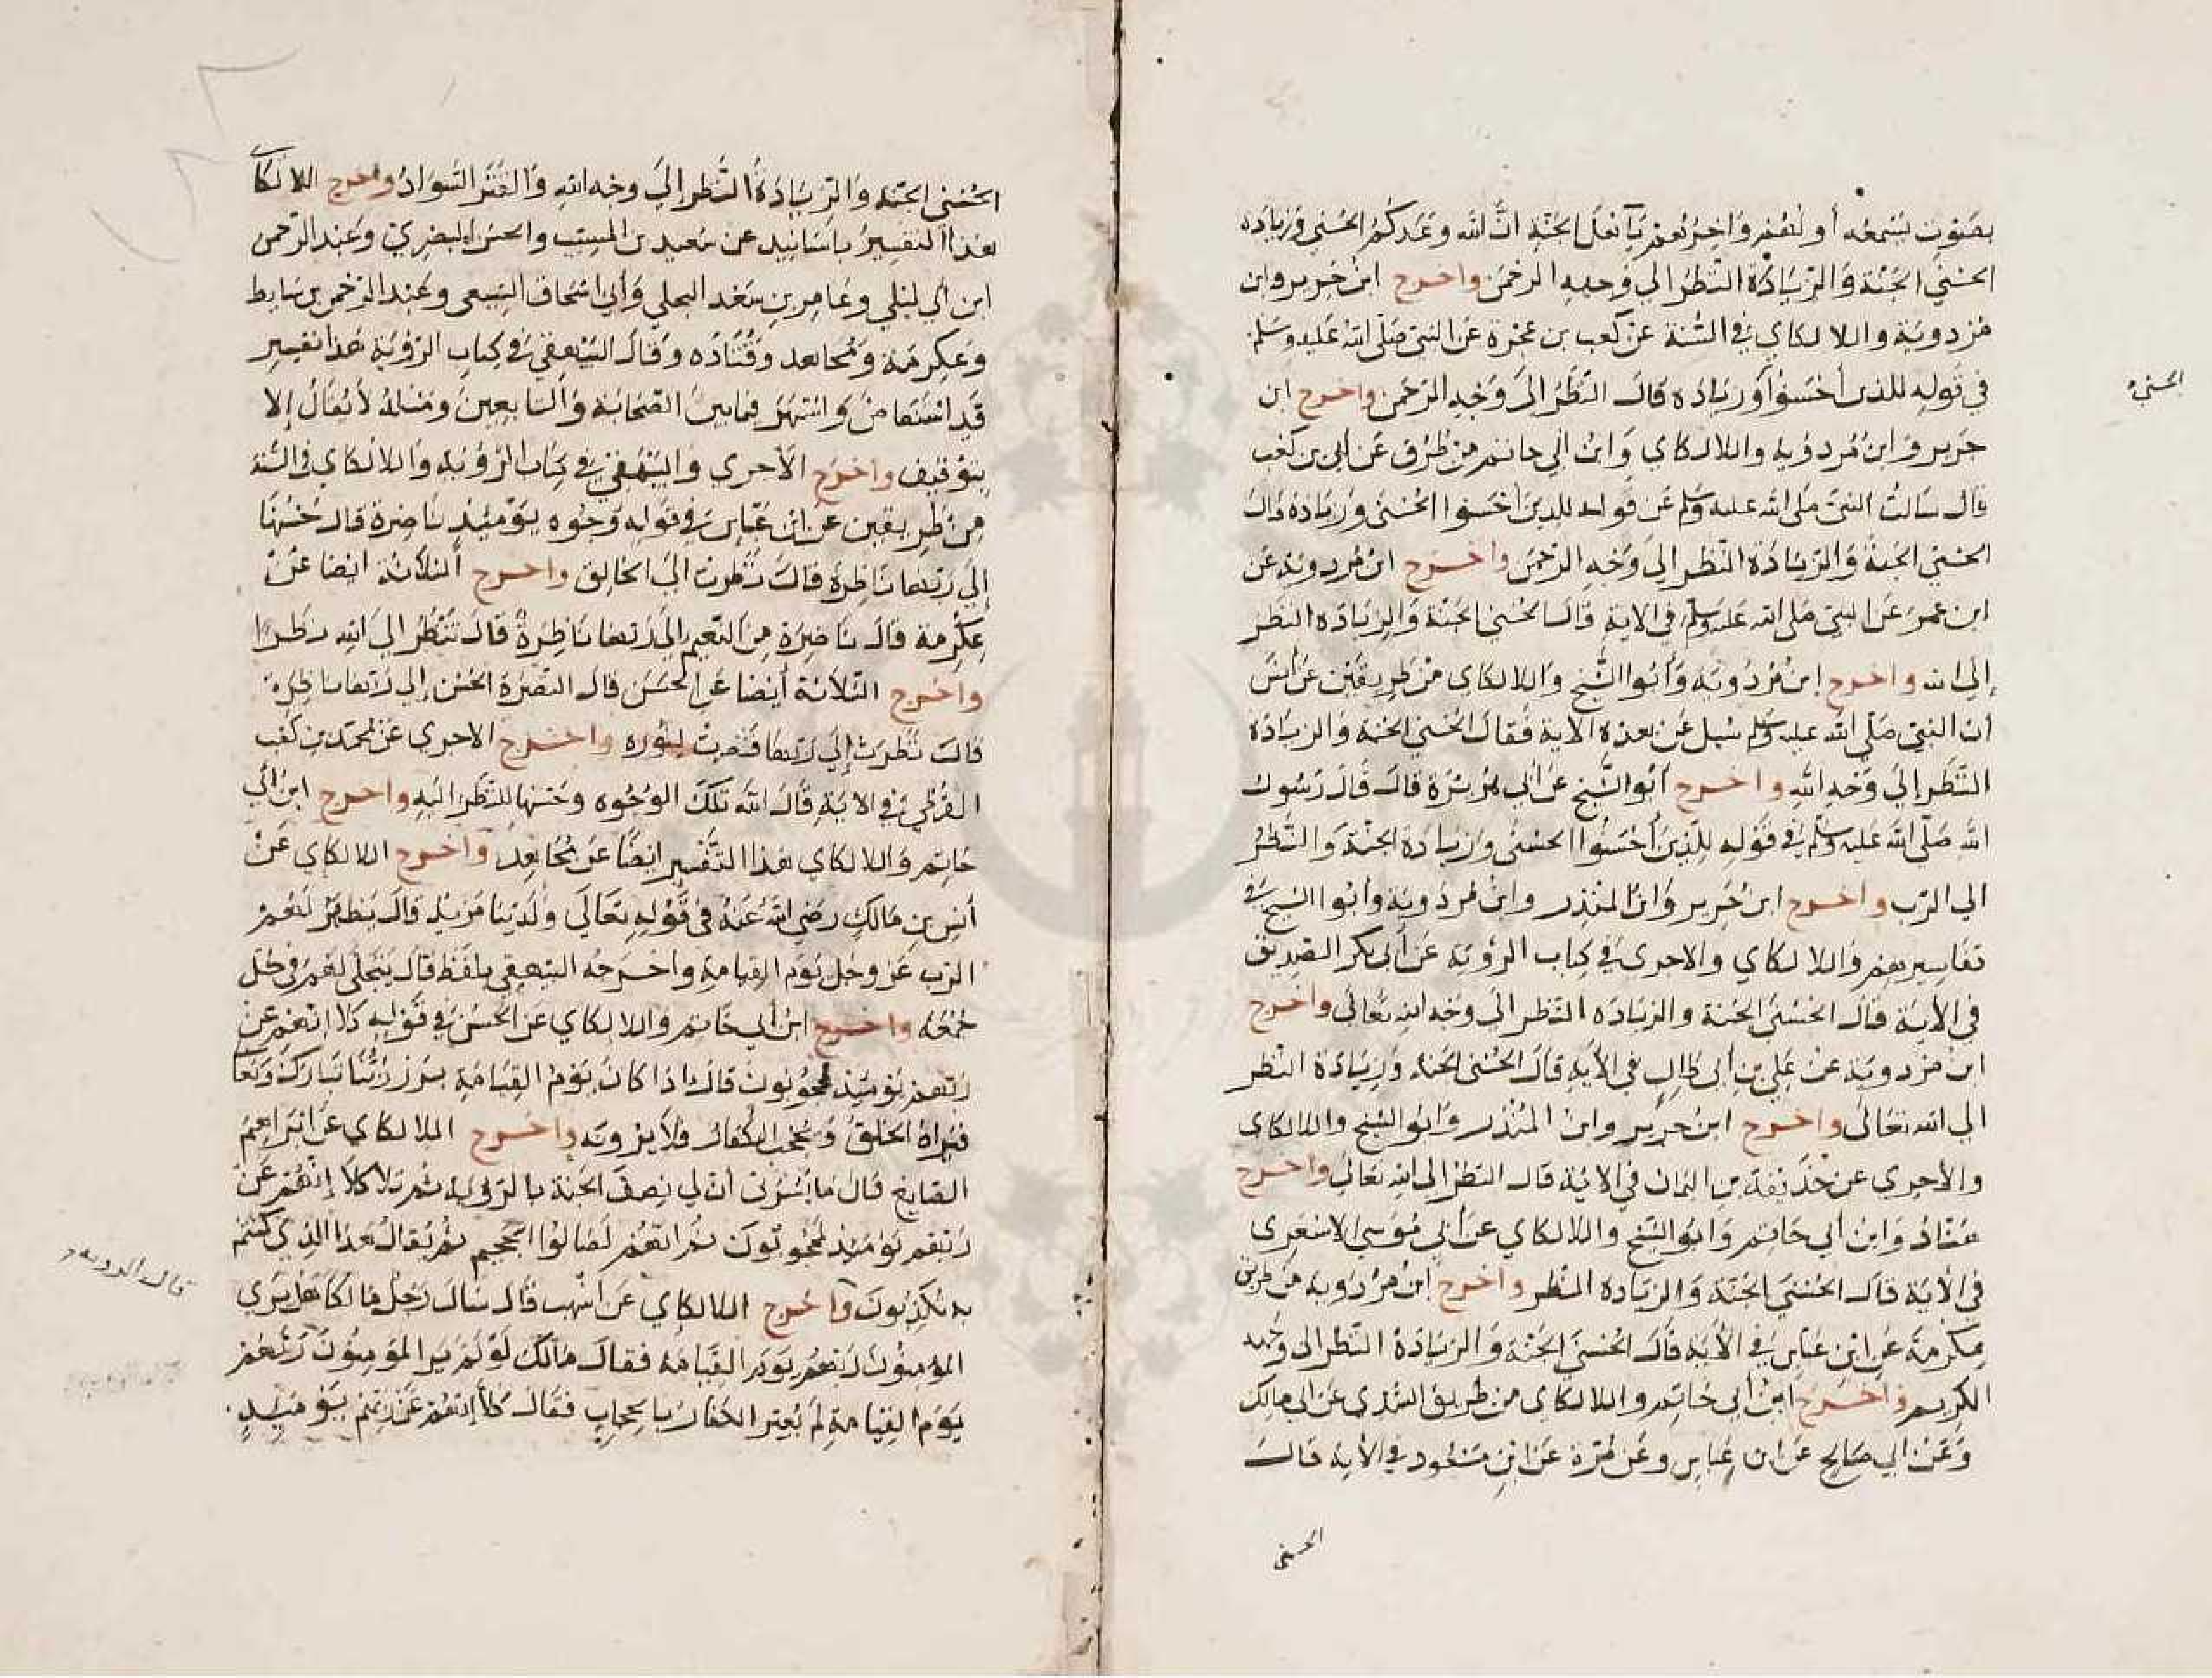 بصوت يسمعه أولهم وآخرهم يا أهل الجنة ان الله وعدكم الحسنى وزيادة
الحسنى الجنة والزيادة النظر إلى وجه الرحمن واخرج ابن جرير وابن
مردوية واللالكاي في السنة عن كعب بن عجرة عن النبي صلى الله عليه وسلم
في قوله للذين أحسنوا وزيادة قال النظر إلى وجه الرحمن واخرج ابن
الحسنى
جرير وابن مردوية واللالكاي وابن ابي حاتم من طرق عن ابي بن كعب
قال سالت النبي صلى الله عليه وسلم عن قوله للذين احسنوا الحسنى وزيادة قال
الحسنى الجنة والزيادة النظر إلى وجه الرحمن واخرج ابن مردوية عن
ابن عمر عن النبي صلى الله عليه وسلم في الاية قال الحسنى الجنة والزيادة النظر
إلى الله واخرج ابن مردوية وأبوا الشيخ واللالكاي من طريقين عن أنس
ان النبي صلى الله عليه وسلم سيل عن هذه الاية فقال الحسنى الجنة والزيادة
النظر إلى وجه الله واخرج أبوا الشيخ عن أبي هريرة قال قال رسول
الله صلى الله عليه وسلم في قوله للذين أحسنوا الحسنى وزيادة الجنة والنظر
الي الرب واخرج ابن جرير وابن المنذر وابن مردوية وأبوا الشيخ في
تفاسيرهم واللالكاي والاجرى في كتاب الرؤية عن أبي بكر الصديق
في الأية قال الحسنى الجنة والزيادة النظر الى وجه الله تعالى واخرج
ابن مردوية عن علي بن أبي طالب في الأية قال الحسنى الجنة وزيادة النظر
الي الله تعالى واخرج ابن جرير وابن المنذر وابوا الشيخ واللالكاى
والأجري عن حذيفة بن اليمان في الاية قال النظر الى الله تعالى واخرج
هناد وابن أبي حاتم وابوا الشيخ واللالكاي عن أبي موسي الاشعرى
في الأية قال الحسنى الجنة والزيادة النظر واخرج ابن مردوية من طريق
عكرمة عن ابن عباس في الأية قال الحسنى الجنة والزيادة النظر الى وجهه
الكريم واخرج ابن أبي حاتم واللالكاى من طريق السدي عن ابى مالك
وعن ابي صالح عن ابن عباس وعن مرة عن ابن مسعود في الأية قال
الحسنى
الحسنى الجنة والزيادة النظر إلى وجه الله والقتر السواد واخرج اللالكا
هذا التفسير باسانيد عن سعيد بن المسيب والحسن البصري وعبد الرحمن
ابن ابي ليلي وعامر بن سعد البجلي وأبي اسحاق السبيعى وعبد الرحمن بن سابط
وعكرمة ومجاهد وقتادة وقال البيهقي في كتاب الرؤية هذا تفسير
قد استفاض واشتهر فيما بين الصحابة والتابعين ومثله لا يقال إلا
بتوقيف واخرج الأجري والبيهقي في كتاب الرؤية واللالكاي في السنة
من طريقين عن ابن عباس في قوله وجوه يومئذ ناضرة قال حسنها
إلى ربها ناظرة قال نظرت الى الخالق واخرج الثلاثة ايضا عن
عكرمة قال ناضرة من النعيم إلى ربها ناظرة قال تنظر الى الله نظرا
واخرج الثلاثة أيضا عن الحسن قال النضرة الحسن إلى ربها ناظرة
قال نظرت إلى ربها فنضرت بنوره واخرج الاجرى عن محمد بن كعب
القرظي في الاية قال الله تلك الوجوه وحسنها للنظر اليه واخرج ابن أبي
حاتم واللالكاي هذا التفسير ايضا عن مجاهد واخرج اللالكاي عن
أنس بن مالك رضي الله عنه في قوله تعالى ولدينا مزيد قال يظهر لهم
الرب عز وجل يوم القيامة واخرجه البيهقي بلفظ قال يتجلى لهم في كل
جمعة واخرج ابن أبي حاتم واللالكاي عن الحسن في قوله كلا انهم عن
ربهم يومئذ لمحجوبون قال اذا كان يوم القيامة برز ربنا تبارك وتعا
فيراه الخلق ويحجب الكفار فلا يرونه واخرج اللالكاي عن ابراهيم
الصايغ قال ما يسرني أن لي نصف الجنة بالرؤية ثم تلا كلا إنهم عن
ربهم يومئذ لمحجوبون ثم انهم لصالوا الجحيم ثم يقال هذا الذي كنتم
به تكذبون واخرج اللالكاي عن اشهب قال سال رجل مالكا هل يرى
قال بالرؤية
المؤمنون ربهم يوم القيامة فقال مالك لو لم ير المؤمنون ربهم
يوم القيامة لم يعير الكفار بالحجاب فقال كلا إنهم عن ربهم يومئذ